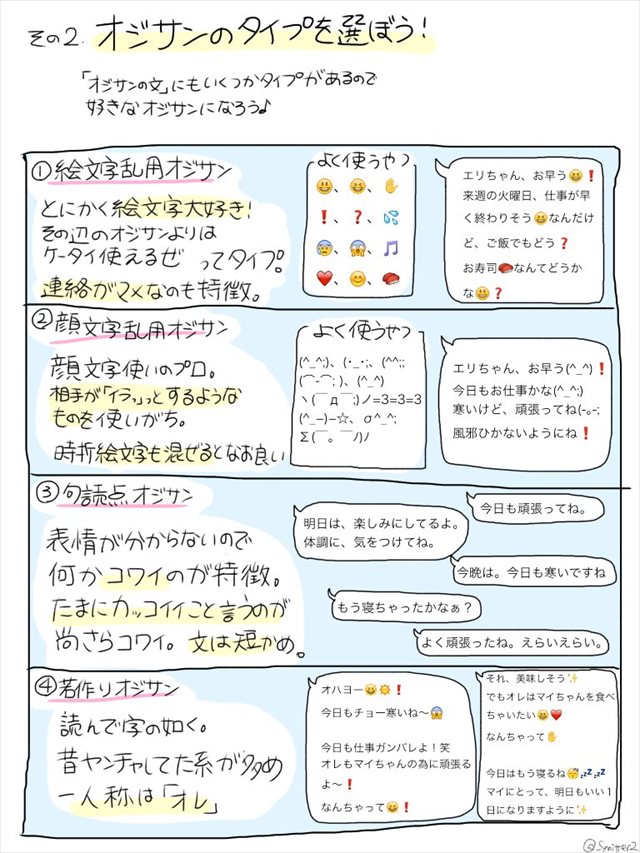 その2. オジサンのタイプを選ぼう!
「オジサンの文」にもいくつかタイプがあるので
好きなオジサンになろう♪
①絵文字乱用オジサン
とにかく絵文字大好き!
その辺のオジサンよりは
ケータイ使えるぜ ってタイプ。
連絡がマメなのも特徴。
よく使うやつ
😃、😆、✋
❗、❓、💦
😰、😱、🎵
❤️、😊、🍣
エリちゃん、お早う😆❗
来週の火曜日、仕事が早
く終わりそう😆なんだけ
ど、ご飯でもどう❓
お寿司🍣なんてどうか
な😃❓
②顔文字乱用オジサン
顔文字使いのプロ。
相手が「イラッ」とするような
ものを使いがち。
時折絵文字も混ぜるとなお良い
よく使うやつ
(^_^;)、(・_・;、(^^;;
(⌒-⌒; )、(^_^)
ヽ(￣д￣;)ノ=3=3=3
(^_−)−☆、σ^_^;
Σ(￣。￣ﾉ)ﾉ
エリちゃん、お早う(^_^)❗
今日もお仕事かな(^_^;)
寒いけど、頑張ってね(-｡-;
風邪ひかないようにね❗
③句読点オジサン
表情が分からないので
何かコワイのが特徴。
たまにカッコイイこと言うのが
尚さらコワイ。文は短かめ。
今日も頑張ってね。
明日は、楽しみにしてるよ。
体調に、気をつけてね。
今晩は。今日も寒いですね
もう寝ちゃったかなぁ？
よく頑張ったね。えらいえらい。
④若作りオジサン
読んで字の如く。
昔ヤンチャしてた系が多め
一人称は「オレ」
オハヨー😆☀️❗
今日もチョー寒いね〜😱
今日も仕事ガンバレよ！笑
オレもマイちゃんの為に頑張る
よ〜❗
なんちゃって😆❗
それ、美味しそう✨
でもオレはマイちゃんを食べ
ちゃいたい😆❤️
なんちゃって✋
今日はもう寝るね😴💤💤
マイにとって、明日もいい1
日になりますように✨